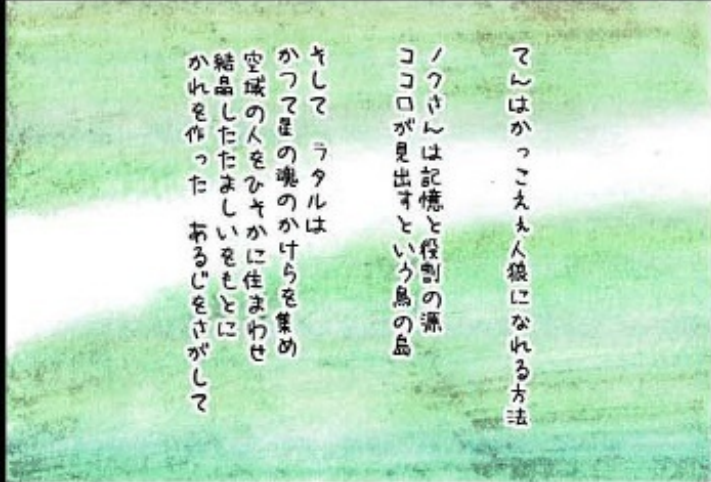 てんはかっこえぇ人狼になれる方法
ノクさんは記憶と役割の源
ココロが見出すという鳥の島
そして ラタルは
かつて星の魂のかけらを集め
空域の人をひそかに住まわせ
結晶したたましいをもとに
かれを作った あるじをさがして